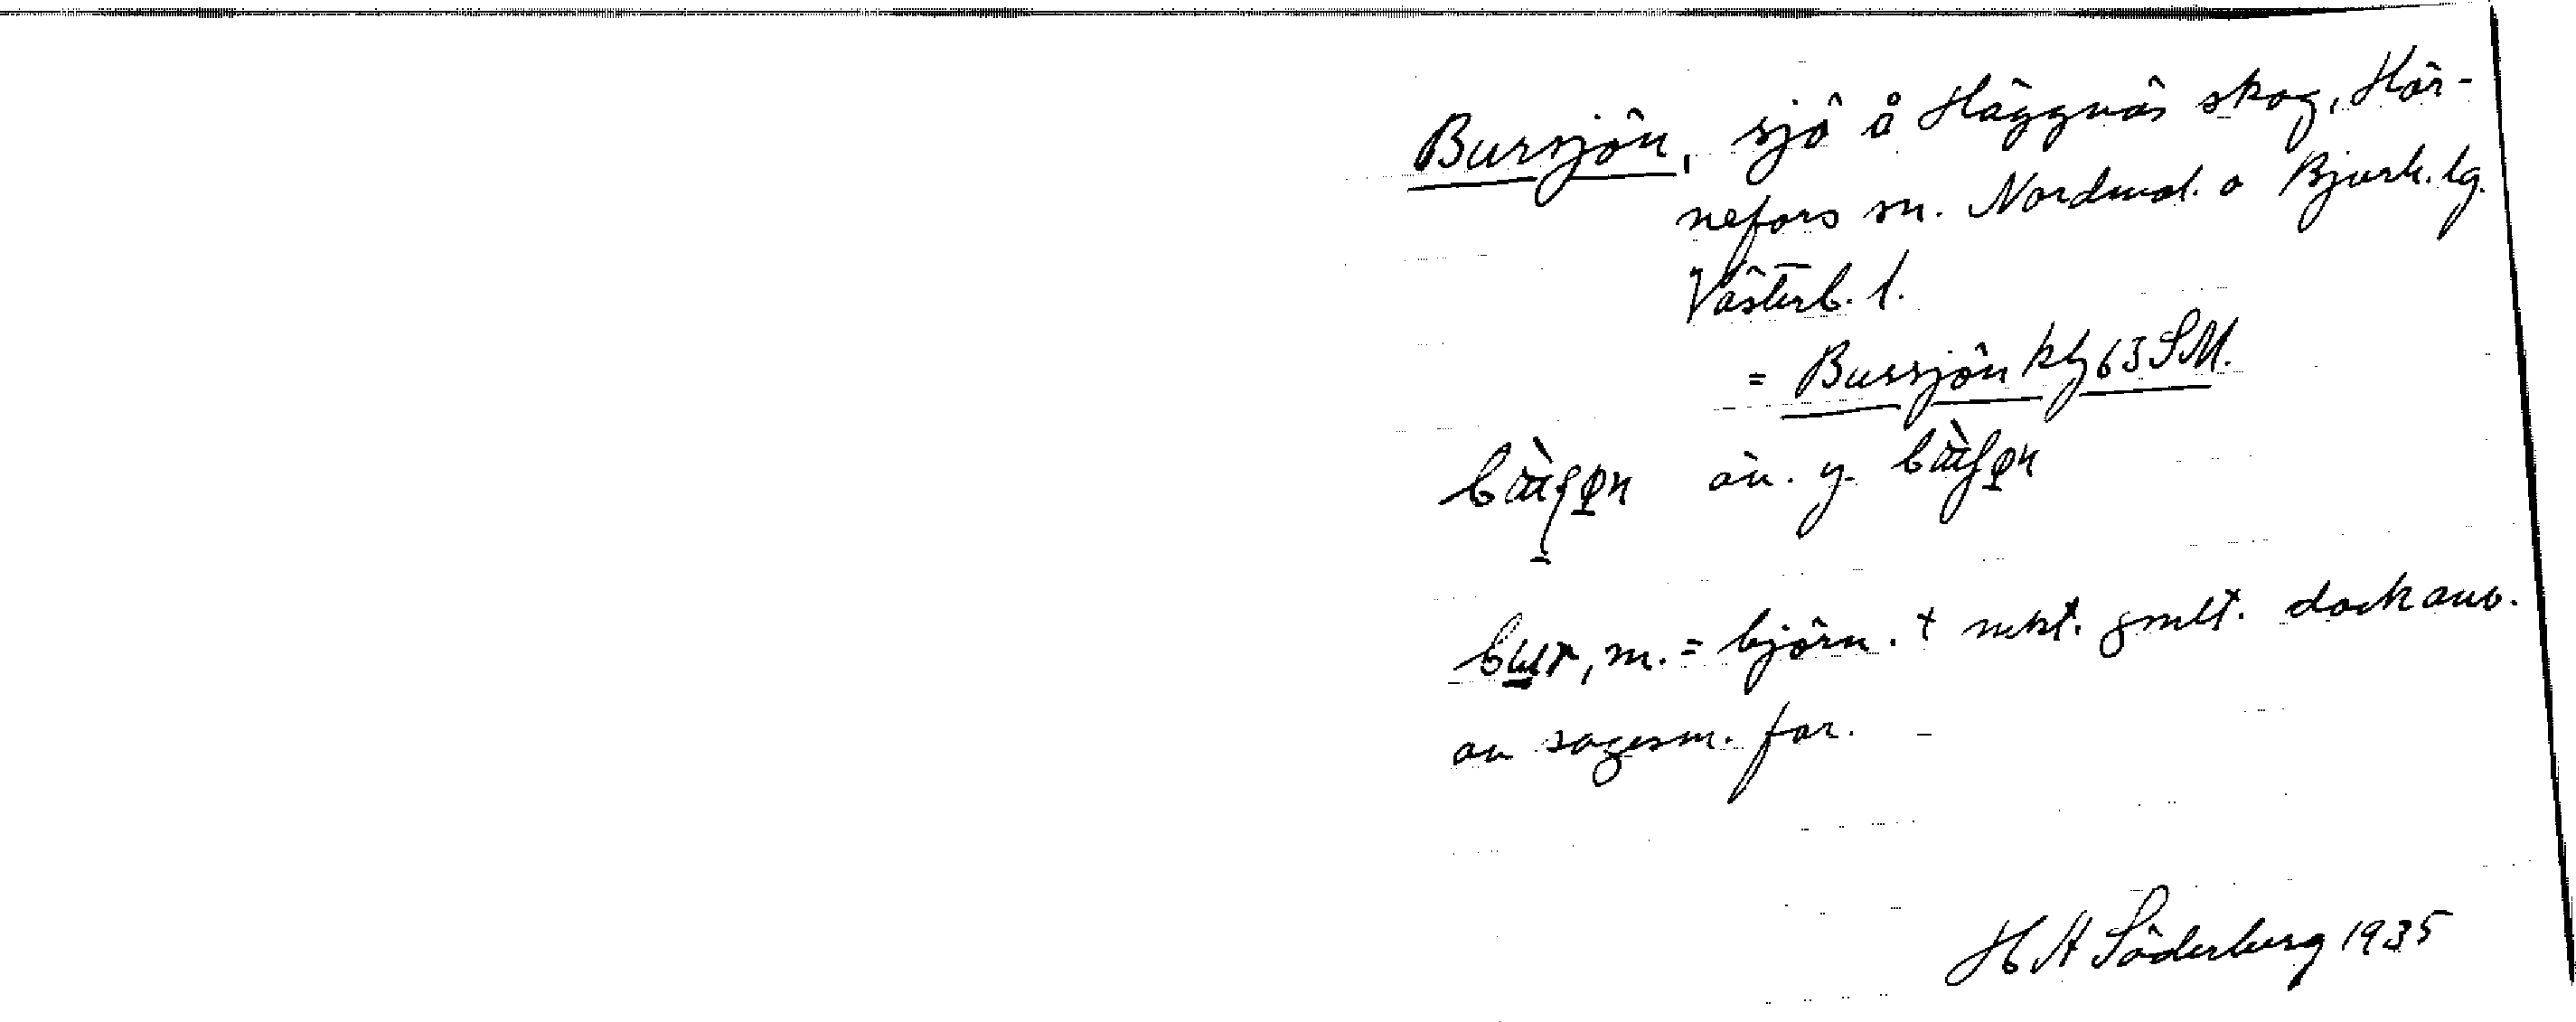 Bursjön, sjö å Häggnäs skog, Hör-
nefors sn. Nordmal. o Bjurh. lg.
Västerb. l.
= Bursjön kbl 63 SM.
än. y.
bur, m. = björn. + mkt. gmlt. dock anv.
av sagesm. far.
H A Söderberg 1935